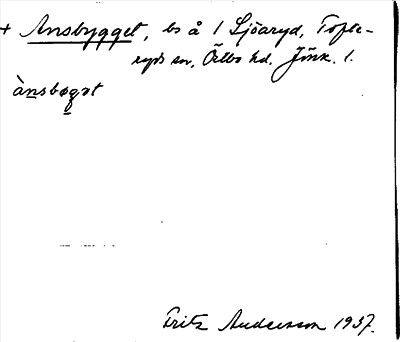 + Ansbygget, bs å 1 Ljöaryd, Tofte-
ryds sn, Östbo hd, Jönk. l.
ànsbøgət
Fritz Andersson 1937.